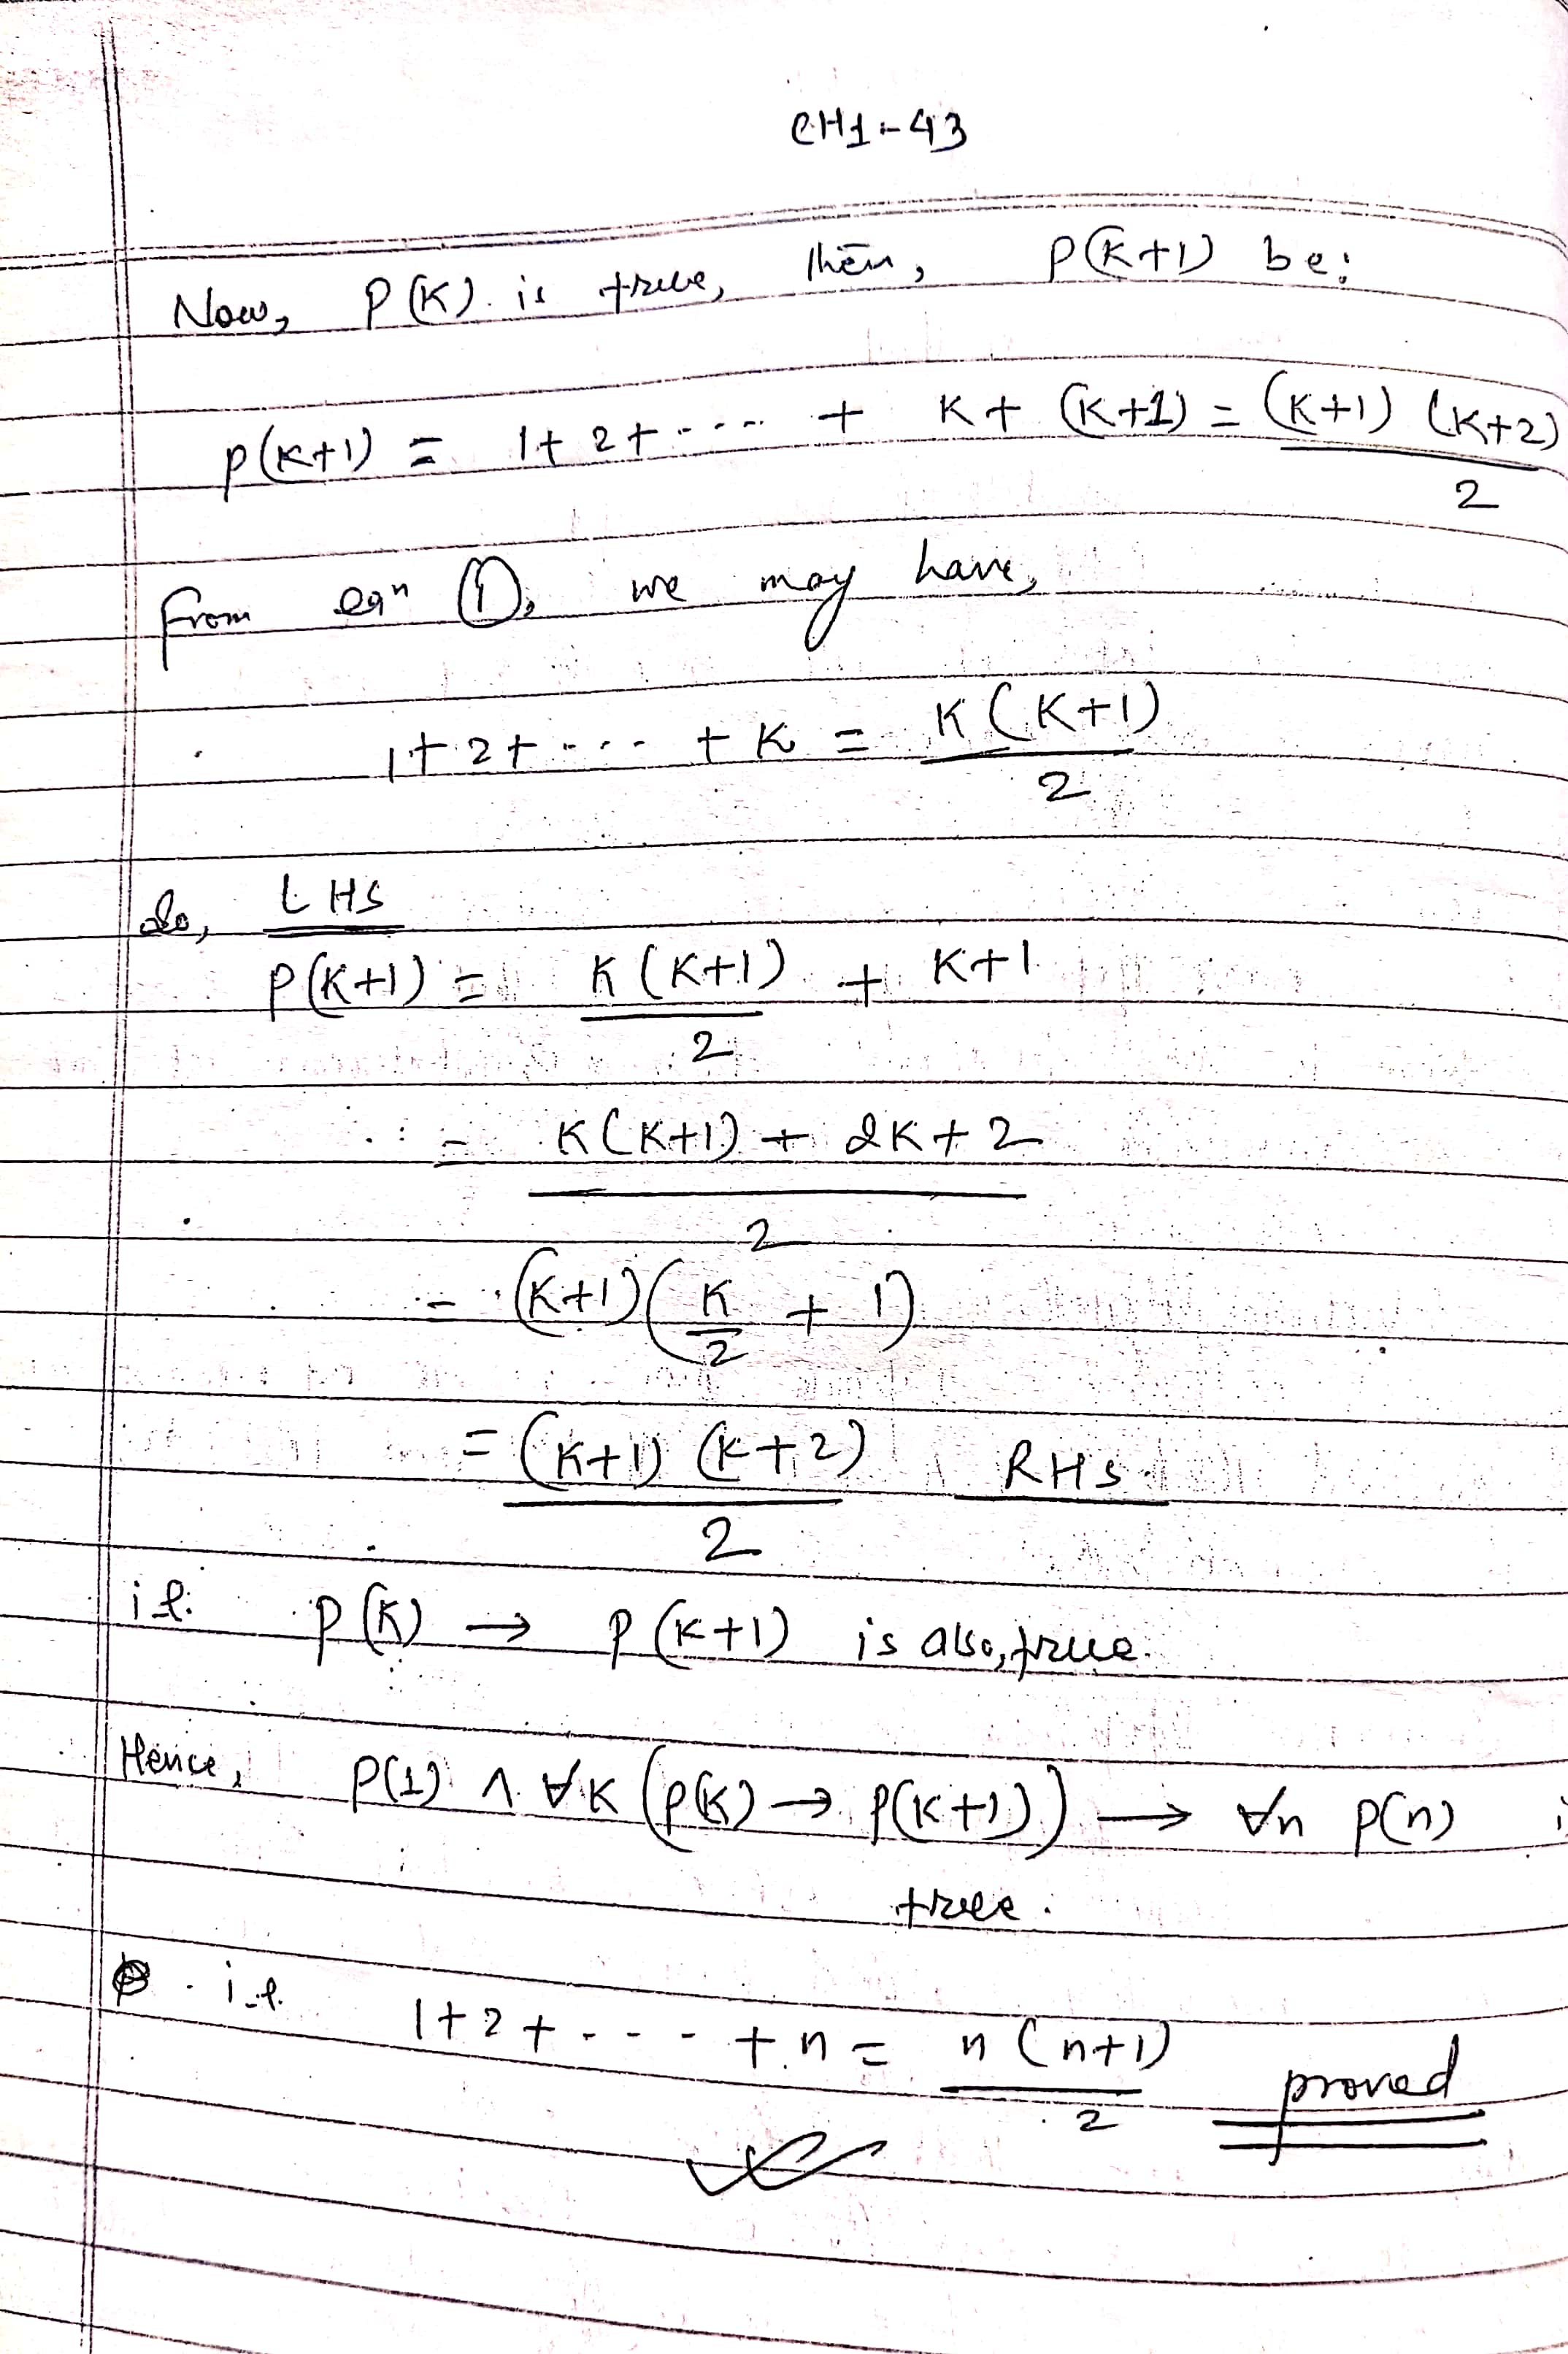 CH1:-43
Now, P(K) is true, then, P(K+1) be:
P(K+1) = 1+2+---- + K+ (K+1) = (K+1) (K+2)
2
From eqn ①, we may have,
1+2+---- + K = K(K+1)
2
So, LHS
P(K+1) = K(K+1) + K+1
2
= K(K+1) + 2K+2
2
= (K+1)(K/2 + 1)
= (K+1) (K+2) RHS
2
i.e. P(K) → P(K+1) is also, true.
Hence, P(1) ∧ ∀K (P(K) → P(K+1)) → ∀n P(n)
true.
i.e. 1+2+---- +n = n(n+1) proved
2